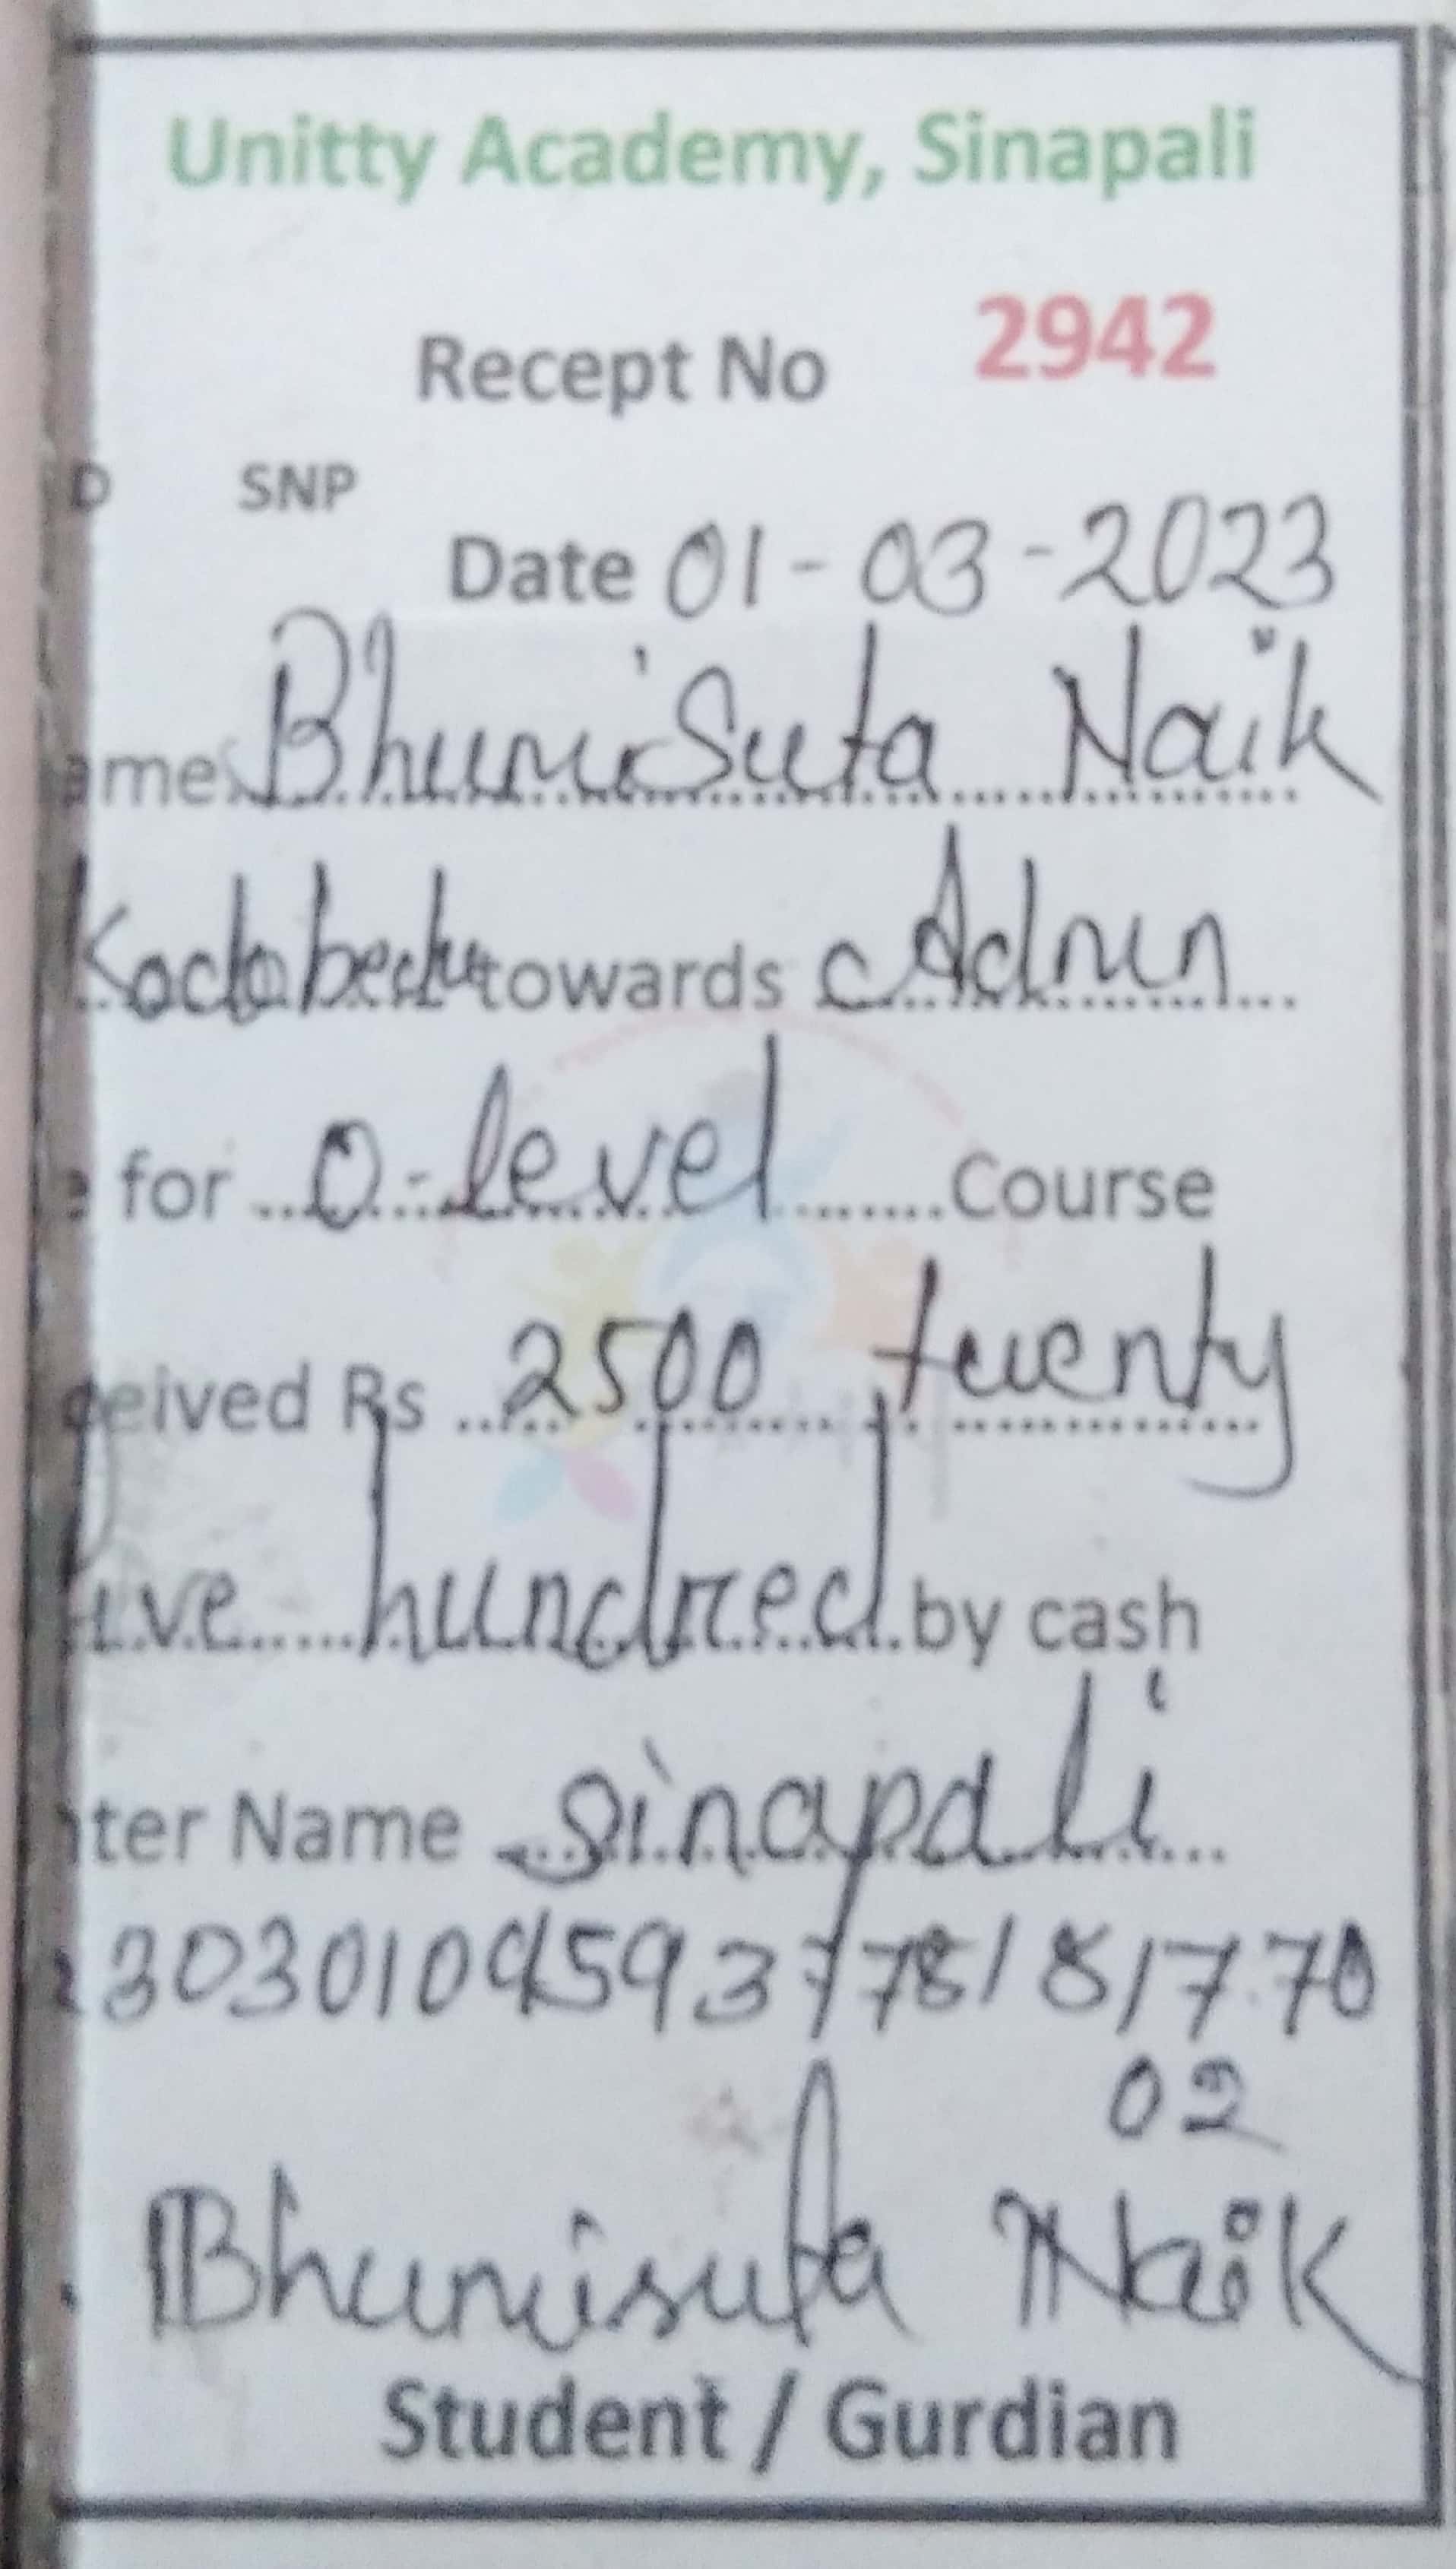 Unitty Academy, Sinapali
Recept No 2942
D SNP
Date 01-03-2023
ame BhumiSuta Naik
towards Admn
e for O-level Course
ceived Rs 2500 twenty
five hundred by cash
nter Name Sinapali
02
Bhumisuta Naik
Student / Gurdian